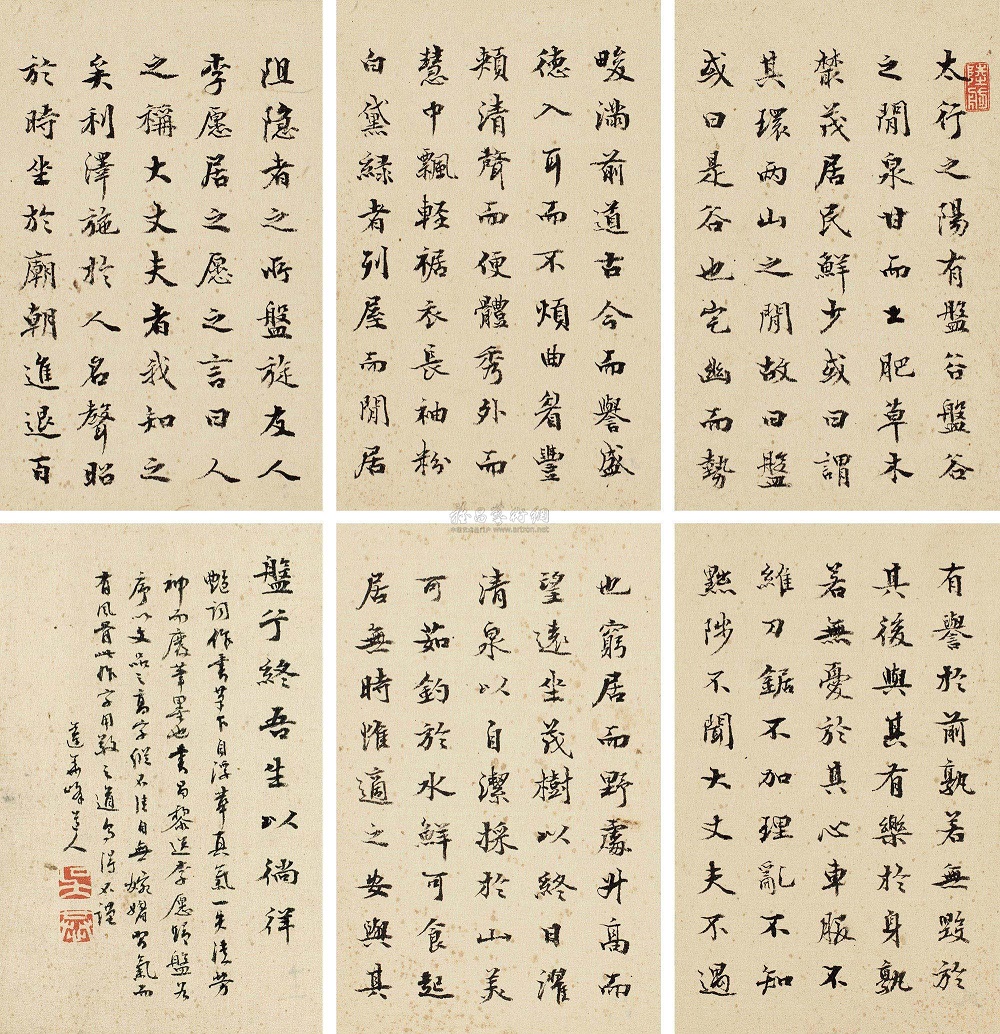 太行之陽有盤谷盤谷
之間泉甘而土肥草木
藂茂居民鮮少或曰謂
其環兩山之間故曰盤
或曰是谷也宅幽而勢
阻隱者之所盤旋友人
李愿居之愿之言曰人
之稱大丈夫者我知之
矣利澤施於人名聲昭
於時坐於廟朝進退百
畯滿前道古今而譽盛
德入耳而不煩曲眉豐
頰清聲而便體秀外而
慧中飄輕裾衣長袖粉
白黛綠者列屋而閒居
也窮居而野處升高而
望遠坐茂樹以終日濯
清泉以自潔採於山美
可茹釣於水鮮可食起
居無時惟適之安與其
有譽於前孰若無毀於
其後與其有樂於身孰
若無憂於其心車服不
維刀鋸不加理亂不知
黜陟不聞大丈夫不遇
盤兮終吾生以徜徉
艷詞作書筆下自浮華真氣一失徒勞
神而廢筆墨也書昌黎送李愿歸盤谷
序以文品之高字縱不佳自無嫵媚習氣而
有風骨此作字用敬之道烏得不謹
蓮華峰道人